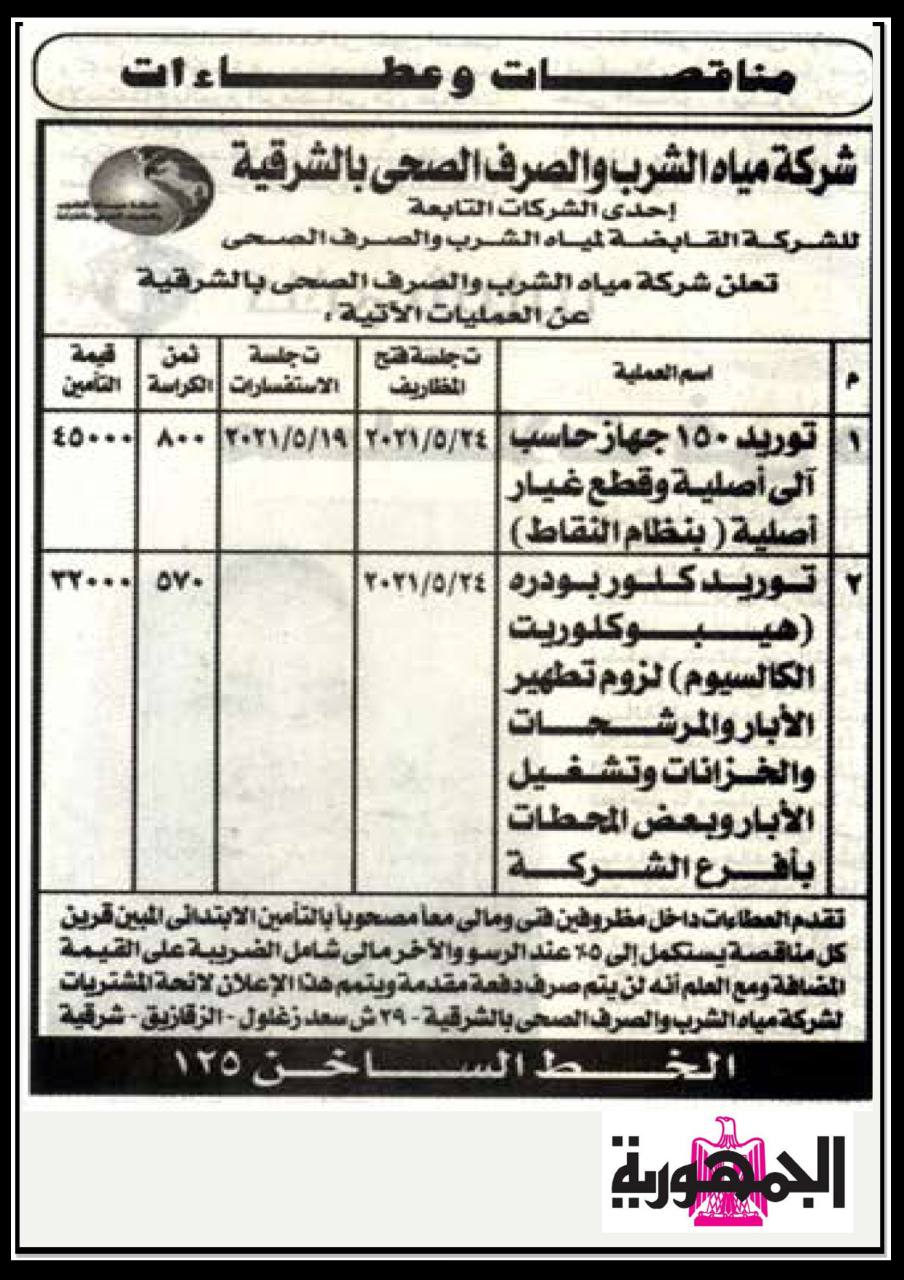 مناقصات وعطاءات
شركة مياه الشرب والصرف الصحى بالشرقية
إحدى الشركات التابعة
للشركة القابضة لمياه الشرب والصرف الصحى
تعلن شركة مياه الشرب والصرف الصحى بالشرقية
عن العمليات الآتية :
م
اسم العملية
ت جلسة فتح
المظاريف
ت جلسة
الاستفسارات
ثمن
الكراسة
قيمة
التأمين
١
توريد ١٥٠ جهاز حاسب
آلى أصلية وقطع غيار
أصلية ( بنظام النقاط )
٢٠٢١/٥/٢٤
٢٠٢١/٥/١٩
٨٠٠
٤٥٠٠٠
٢
توريد كلور بودره
(هيبوكلوريت
الكالسيوم) لزوم تطهير
الأبار والمرشحات
والخزانات وتشغيل
الأبار وبعض المحطات
بأفرع الشركة
٢٠٢١/٥/٢٤
٥٧٠
٣٢٠٠٠
تقدم العطاءات داخل مظروفين فنى ومالى معاً مصحوباً بالتأمين الابتدائى المبين قرين
كل مناقصة يستكمل إلى ٥٪ عند الرسو والآخر مالى شامل الضريبة على القيمة
المضافة ومع العلم أنه لن يتم صرف دفعة مقدمة ويتمم هذا الإعلان لائحة المشتريات
لشركة مياه الشرب والصرف الصحى بالشرقية - ٢٩ ش سعد زغلول - الزقازيق - شرقية
الخط الساخن ١٢٥
الجمهورية